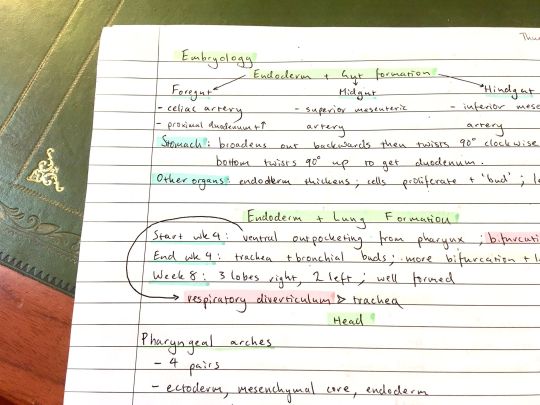 Thu
Embryology
Endoderm + Gut formation
Foregut Midgut Hindgut
- celiac artery - superior mesenteric - inferior mese
- proximal duodenum + ↑ artery artery
Stomach: broadens out backwards then twists 90° clockwise
bottom twists 90° up to get duodenum.
Other organs: endoderm thickens; cells proliferate + 'bud';
Endoderm + Lung Formation
Start wk 4: ventral outpocketing from pharynx; bifurcati
End wk 4: trachea + bronchial buds; more bifurcation +
Week 8: 3 lobes right, 2 left; well formed
→ respiratory diverticulum > trachea
Head
Pharyngeal arches
- 4 pairs
- ectoderm, mesenchymal core, endoderm